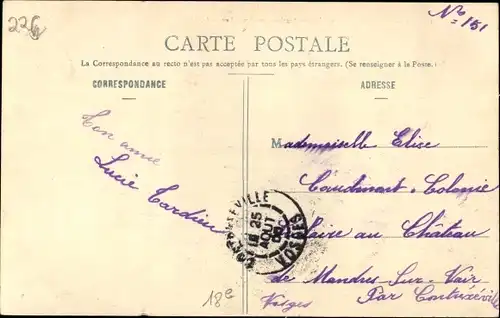 226
Nº 151
CARTE POSTALE
La Correspondance au recto n'est pas acceptée par tous les pays étrangers. (Se renseigner à la Poste.)
CORRESPONDANCE
ADRESSE
Ton amie
Lucie Tardieu
Mademoiselle Elise
Colonie
au Château
de Mandres Sur Vair
Par Contrexéville
Vosges
VILLE
25
AOUT
VOSGES
18e